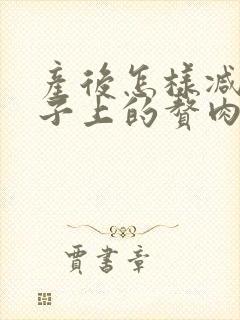 產後怎樣減
子上的贅肉
賈書章